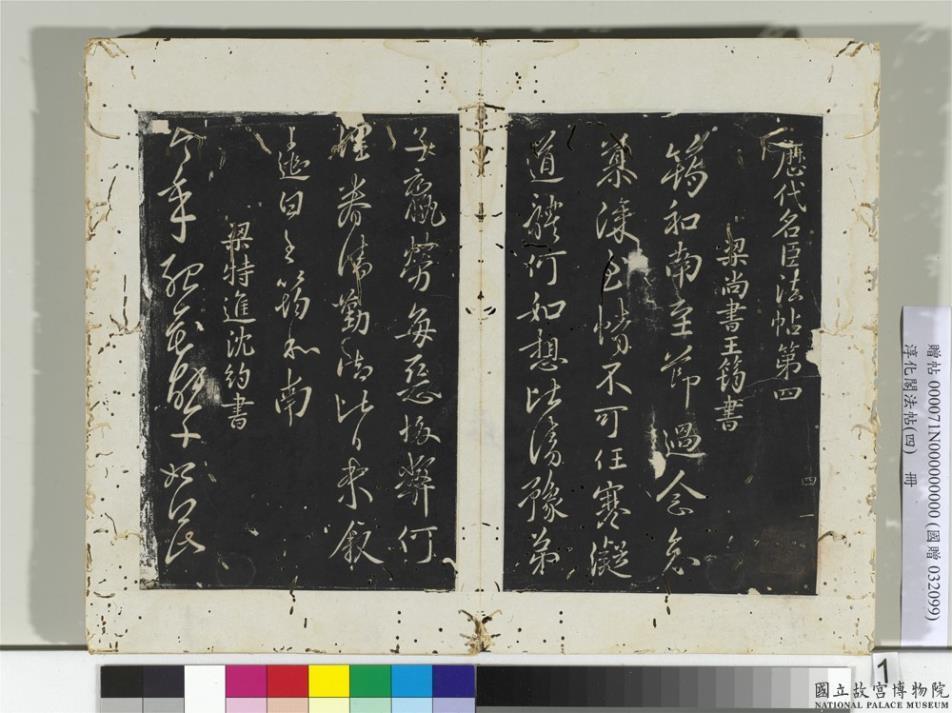 歷代名臣法帖第四
四 一
梁尚書王筠書
筠和南至節過念
深至情不可任寒凝
道體何如想比清豫弟
子羸勞每惡弊何
眷清勤諸比日來敘
遣白之筠和南
梁特進沈約書
今年
贈帖 000071N000000000 (國贈 032099)
淳化閣法帖(四) 冊
1
國立故宮博物院
NATIONAL PALACE MUSEUM